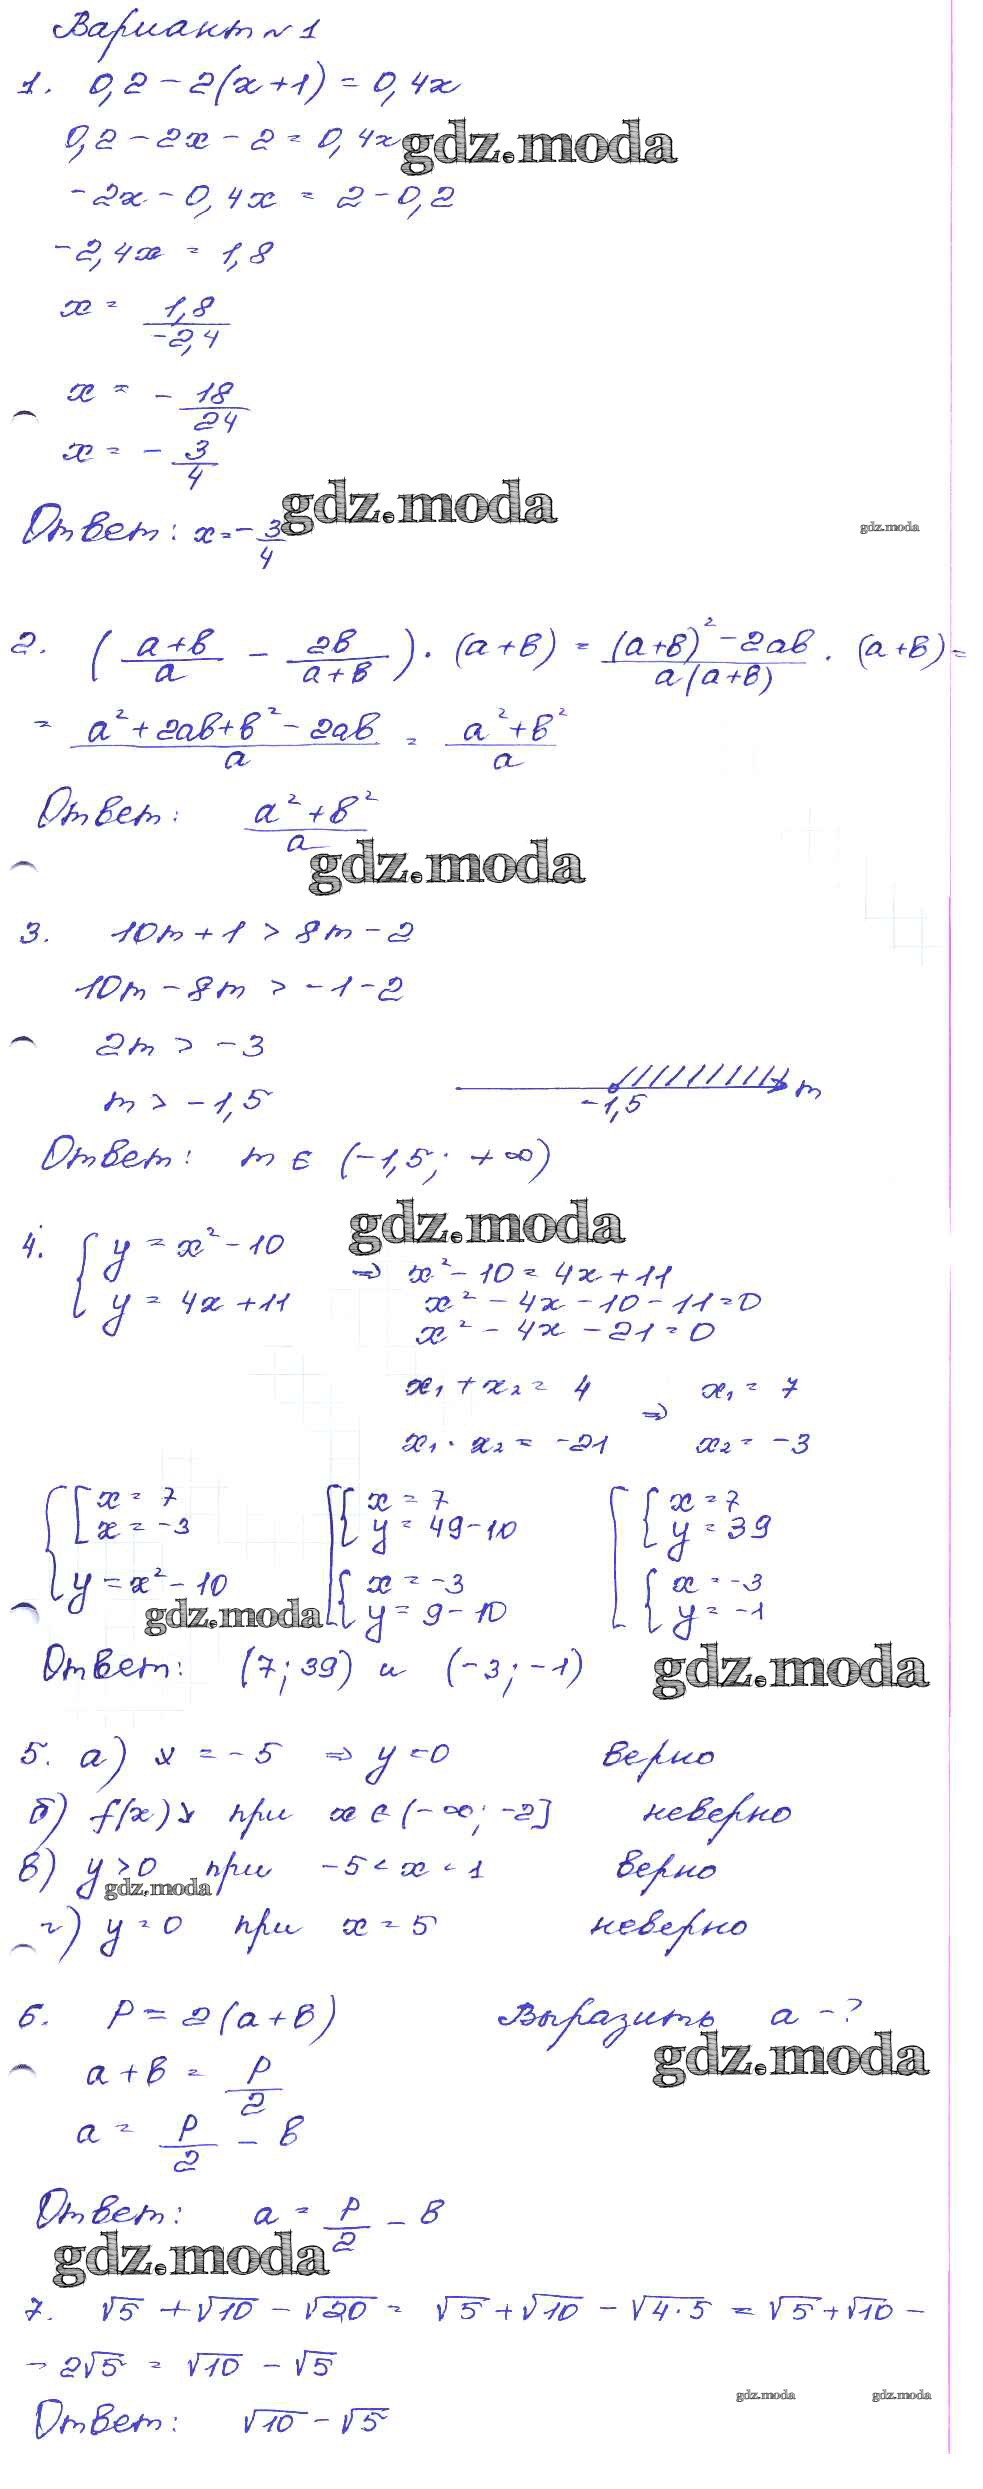 Вариант №1
1. 0,2 - 2(x+1) = 0,4x
0,2 - 2x - 2 = 0,4x
gdz.moda
-2x - 0,4x = 2 - 0,2
-2,4x = 1,8
x = 1,8/-2,4
x = - 18/24
x = - 3/4
gdz.moda
Ответ: x = - 3/4
gdz.moda
2. ((a+b)/a - 2b/(a+b)) · (a+b) = ((a+b)² - 2ab)/(a(a+b)) · (a+b) =
= (a² + 2ab + b² - 2ab)/a = (a² + b²)/a
Ответ: (a² + b²)/a
gdz.moda
3. 10m + 1 > 8m - 2
10m - 8m > -1 - 2
2m > -3
m > -1,5
-1,5 m
Ответ: m ∈ (-1,5; +∞)
gdz.moda
4. { y = x² - 10 ⇒ x² - 10 = 4x + 11
y = 4x + 11 x² - 4x - 10 - 11 = 0
x² - 4x - 21 = 0
x₁ + x₂ = 4 x₁ = 7
⇒
x₁ · x₂ = -21 x₂ = -3
{ [ x = 7 [ { x = 7 [ { x = 7
x = -3 y = 49 - 10 y = 39
y = x² - 10 { x = -3 { x = -3
gdz.moda y = 9 - 10 y = -1
Ответ: (7; 39) и (-3; -1)
gdz.moda
5. а) x = -5 ⇒ y = 0 верно
б) f(x)↘ при x ∈ (-∞; -2] неверно
в) y > 0 при -5 < x < 1 верно
gdz.moda
г) y = 0 при x = 5 неверно
6. P = 2(a+b) Выразить a - ?
gdz.moda
a + b = P/2
a = P/2 - b
Ответ: a = P/2 - b
gdz.moda
7. √5 + √10 - √20 = √5 + √10 - √4·5 = √5 + √10 -
- 2√5 = √10 - √5
gdz.moda gdz.moda
Ответ: √10 - √5